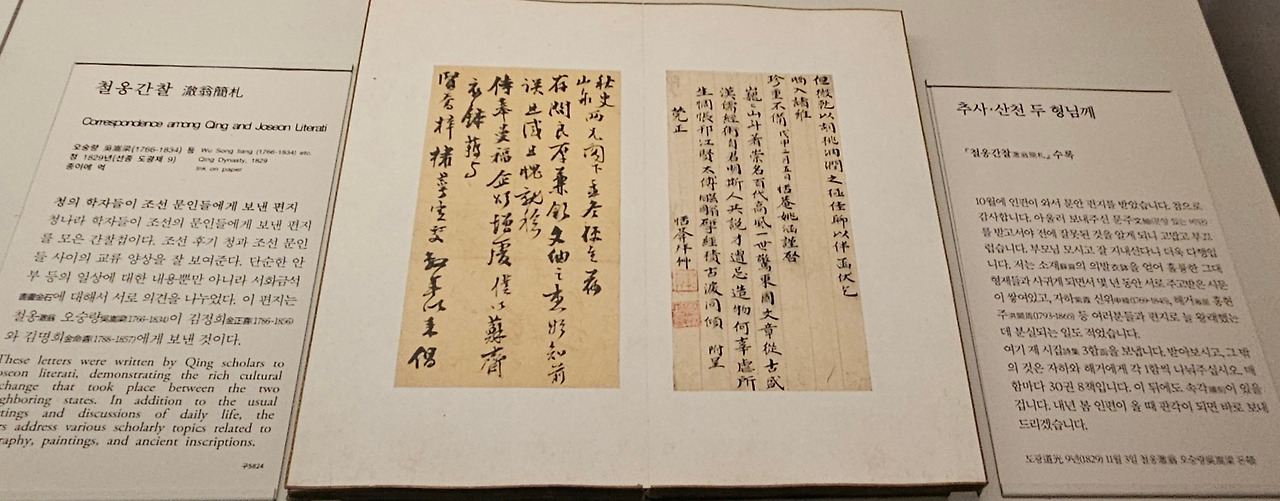 철옹간찰 澈翁簡札
Correspondence among Qing and Joseon Literati
오숭량 吳嵩梁(1766-1834) 등 Wu Song liang (1766-1834) etc.
청 1829년(선종 도광제 9) Qing Dynasty, 1829
종이에 먹 Ink on paper
청의 학자들이 조선 문인들에게 보낸 편지
청나라 학자들이 조선의 문인들에게 보낸 편지
를 모은 간찰첩이다. 조선 후기 청과 조선 문인
들 사이의 교류 양상을 잘 보여준다. 단순한 안
부 등의 일상에 대한 내용뿐만 아니라 서화금석
書畫金石에 대해서 서로 의견을 나누었다. 이 편지는
철옹澈翁 오숭량吳嵩梁(1766-1834)이 김정희金正喜(1786-1856)
와 김명희金命喜(1788-1857)에게 보낸 것이다.
These letters were written by Qing scholars to
oseon literati, demonstrating the rich cultural
change that took place between the two
ghboring states. In addition to the usual
tings and discussions of daily life, the
rs address various scholarly topics related to
raphy, paintings, and ancient inscriptions.
구5824
但微乾以胡桃油潤之極佳聊以伴函伏乞
哂入諸維
珍重不備戊甲二月五日悟菴姚涵謹啓
巍巍山斗著崇名百代高風一世驚東國文章從古盛
漢儒經術自君明斯人共說才遺忌造物何辜處所
生惆悵邗江賢太傅 經積古淚同傾 附呈
莞正
拜
秋史
山泉兩兄閣下孟冬使至荷
存問 兼 文 之惠 知前
誤且感且愧就稔
侍奉曼福企頌增 僕以蘇齋
衣鉢 与
賢喬梓棣萼定交數年以來倡
추사·산천 두 형님께
『철옹간찰澈翁簡札』 수록
10월에 인편이 와서 문안 편지를 받았습니다. 참으로
감사합니다. 아울러 보내주신 문주文紬(문양 있는 비단)
를 받고서야 전에 잘못된 것을 알게 되니 고맙고 부끄
럽습니다. 부모님 모시고 잘 지내신다니 더욱 다행입
니다. 저는 소재蘇齋의 의발衣鉢을 얻어 훌륭한 그대
형제들과 사귀게 되면서 몇 년 동안 서로 주고받은 시문
이 쌓여있고, 자하紫霞 신위申緯(1769-1845), 해거海居 홍현
주洪顯周(1793-1865) 등 여러분들과 편지로 늘 왕래했는
데 분실되는 일도 적었습니다.
여기 제 시집詩集 3함函을 보냅니다. 받아보시고, 그 밖
의 것은 자하와 해거에게 각 1함씩 나눠주십시오. 매
함마다 30권 8책입니다. 이 뒤에도 속각續刻이 있을
겁니다. 내년 봄 인편이 올 때 판각이 되면 바로 보내
드리겠습니다.
도광道光 9년(1829) 11월 3일 철옹澈翁 오숭량吳嵩梁 돈頓